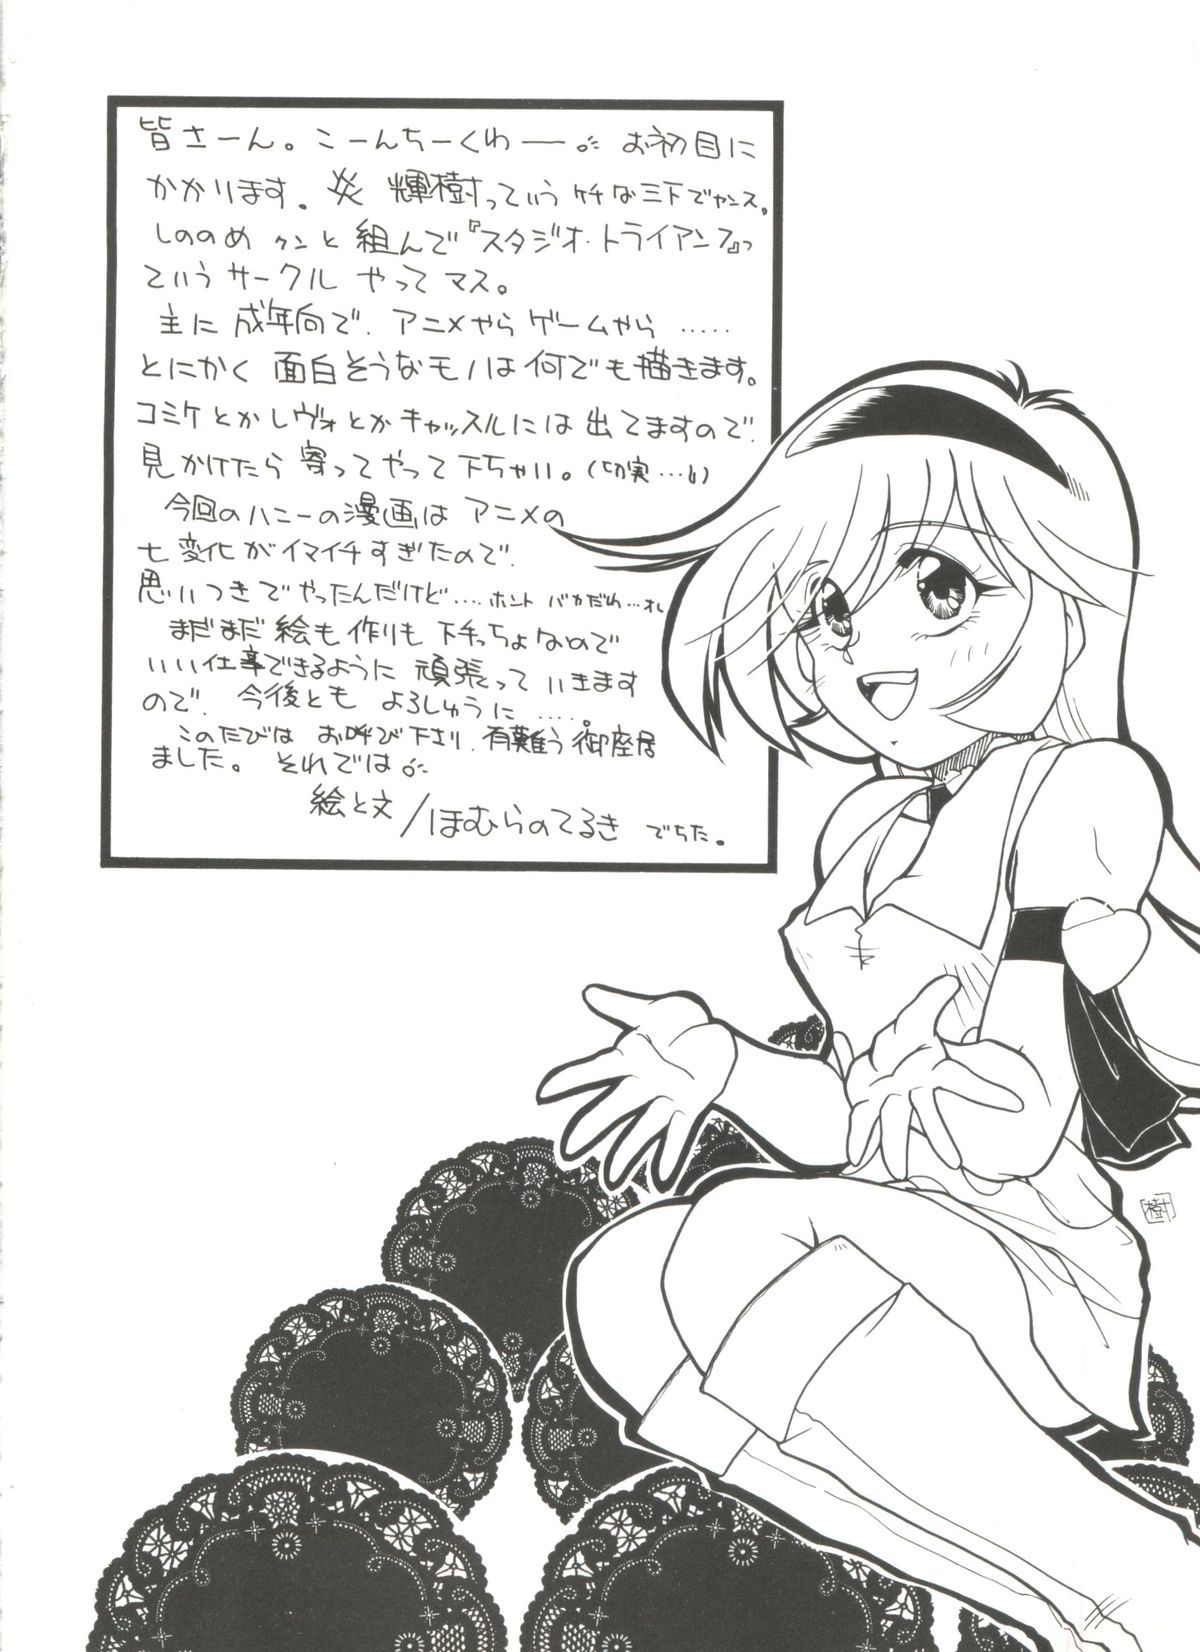 皆さーん。こーんちーくわー。お初目に
かかります。炎 輝樹っていうケチな三下でヤンス。
しののめクンと組んで『スタジオ・トライアングル』っ
ていうサークル やってマス。
主に成年向で、アニメやらゲームやら……
とにかく面白そうなモノは何でも描きます。
コミケとかレヴォとかキャッスルには出てますので、
見かけたら寄ってやって下ちゃい。(切実…!)
今回のハニーの漫画はアニメの
七変化がイマイチすぎたので、
思いつきでやったんだけど….ホント バカだわ…オレ
まだまだ絵も作りも下手っちょなので
いい仕事できるように頑張っていきます
ので、今後とも よろしゅうに……。
このたびは お呼び下さり、有難う御座居
ました。それでは。
絵と文/ほむらのてるき でちた。
樹